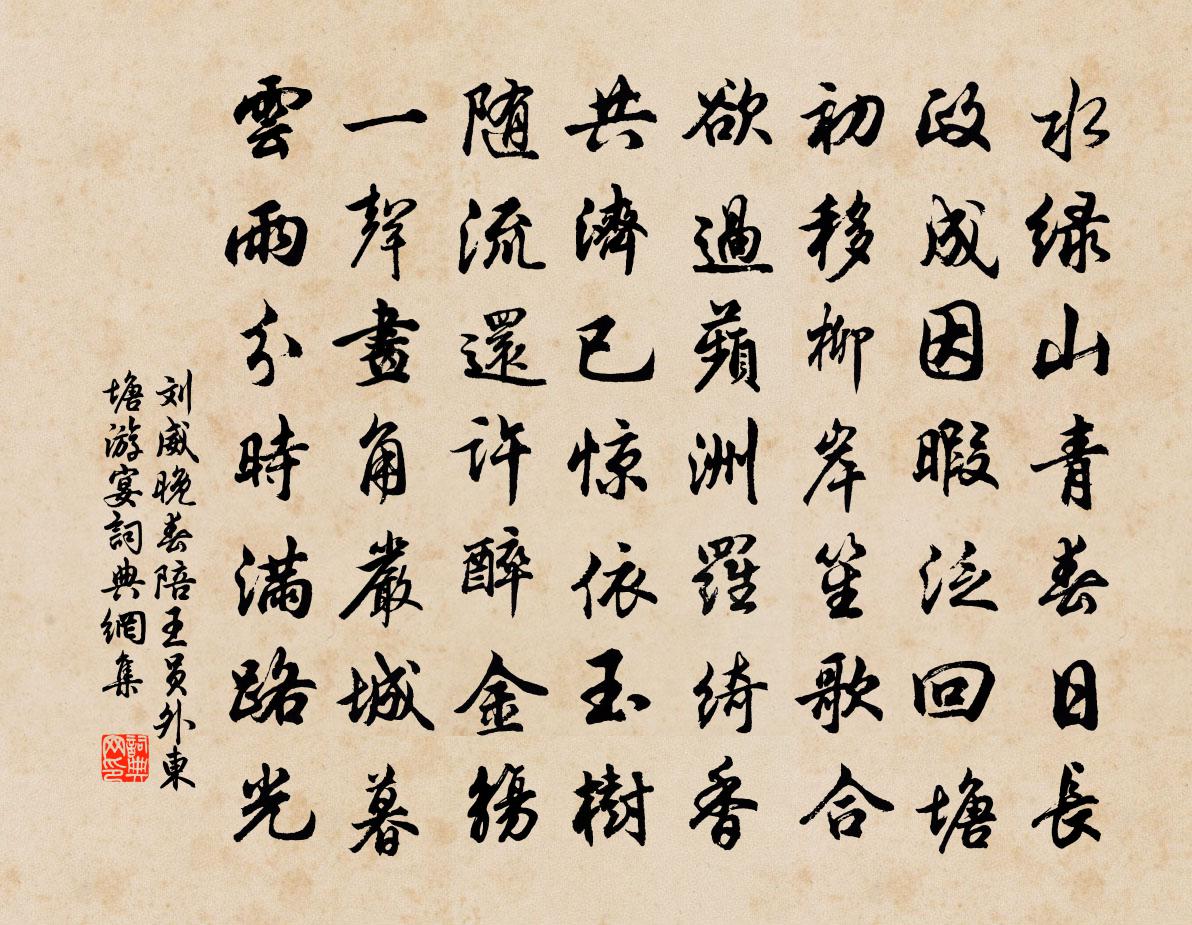 水绿山青春日長
政成因暇泛回塘
初移柳岸笙歌合
欲過蘋洲羅綺香
共濟已惊依玉樹
随流還许醉金觴
一聲畫角嚴城暮
雲雨分時滿路光
刘威晚春陪王員外東
塘游宴詞典網集
詞典
网印